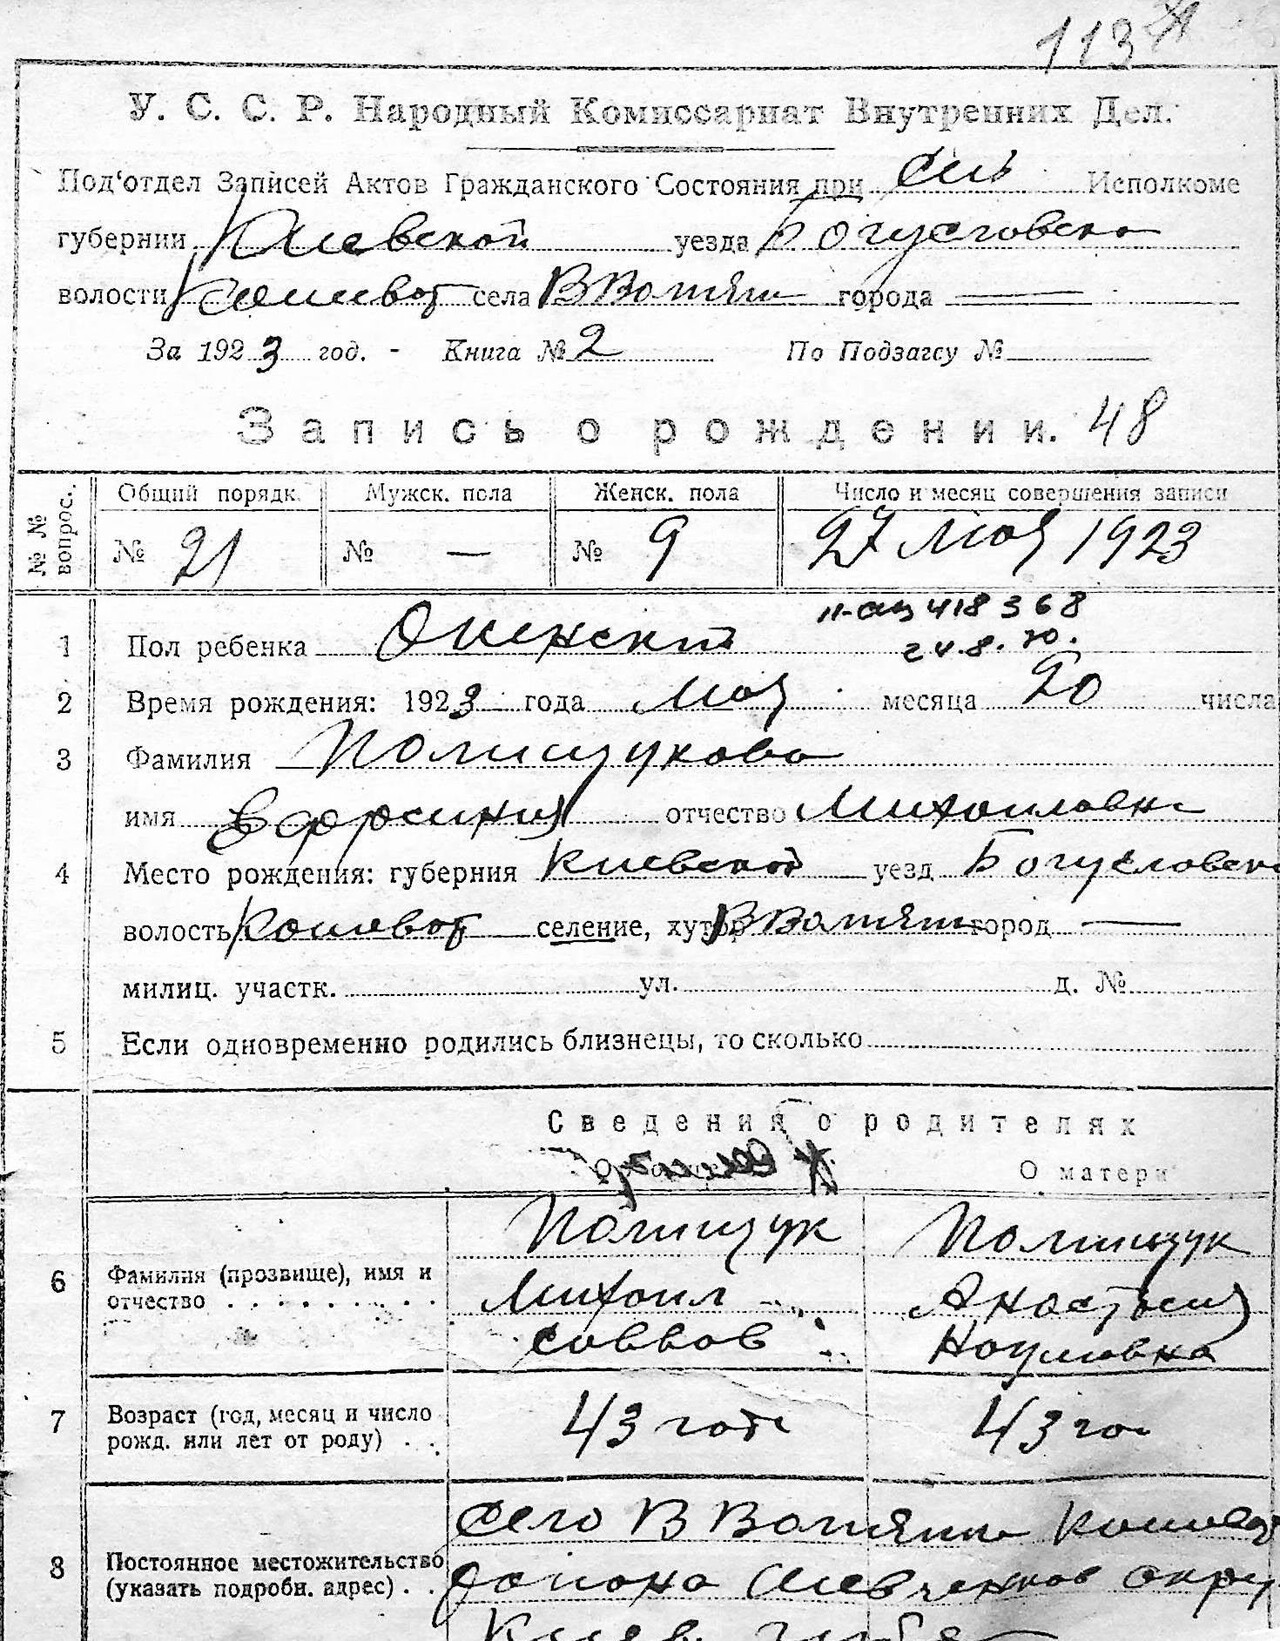 113
У. С. С. Р. Народный Комиссариат Внутренних Дел.
Под‘отдел Записей Актов Гражданского Состояния при Сель Исполкоме
губернии Киевской уезда Богуславско
волости села В Вотяги города —
За 1923 год. - Книга № 2 По Подзагсу №
Запись о рождении. 48
№ № вопрос. Общий порядк. Мужск. пола Женск. пола Число и месяц совершения записи
№ 21 № — № 9 27 мая 1923
418368
24.8.
1 Пол ребенка Женский
2 Время рождения: 1923 года мая месяца 20 числа
3 Фамилия Полищукова
имя Ефросиния отчество Михайловна
4 Место рождения: губерния Киевской уезд Богуславско
волость селение, хутор город —
милиц. участк. ул. д. №
5 Если одновременно родились близнецы, то сколько
Сведения о родителях
О матери
Полищук Полищук
6 Фамилия (прозвище), имя и Михаил Анастасия
отчество Саввов Наумовна
7 Возраст (год, месяц и число 43 года 43 го
рожд. или лет от роду)
село В
8 Постоянное местожительство района Шевченков округ
(указать подробн. адрес)
Киев. губ